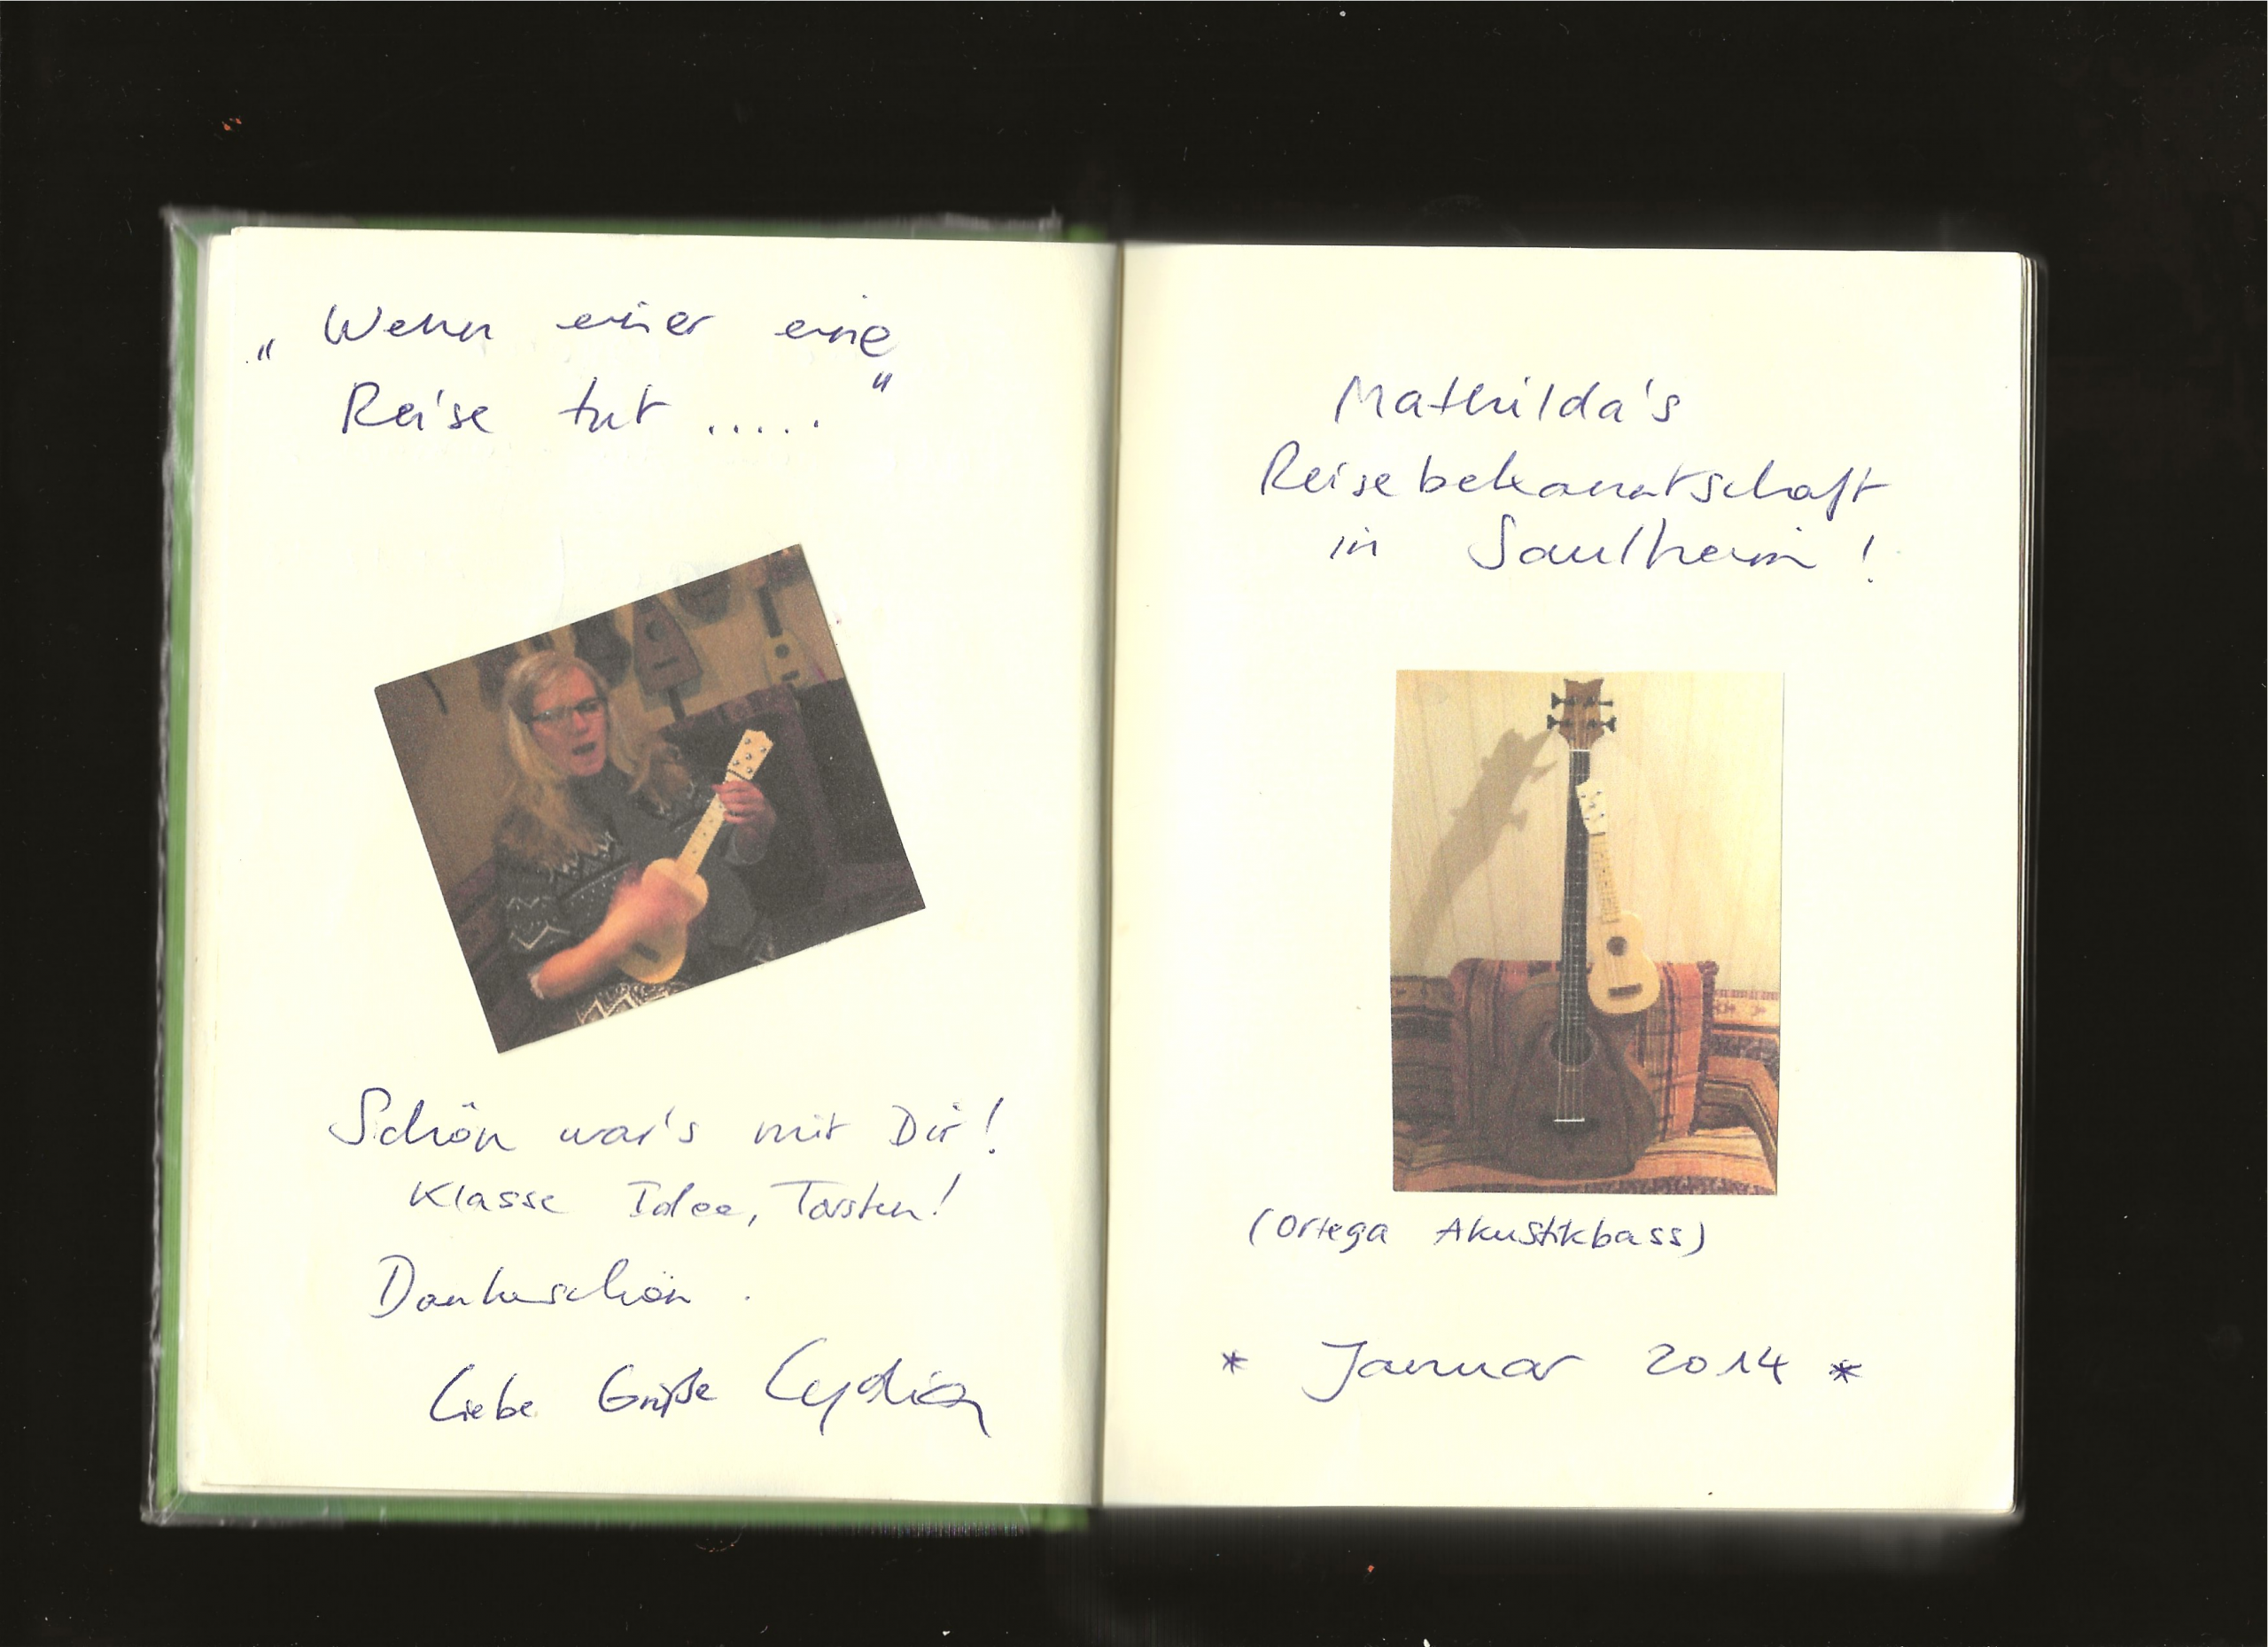 „Wenn einer eine
Reise tut ....."
Schön war's mit Dir!
Klasse Idee, Torsten!
Dankeschön.
Liebe Grüße Lydia
Mathilda's
Reisebekanntschaft
in Saulheim!
(Ortega Akustikbass)
* Januar 2014 *